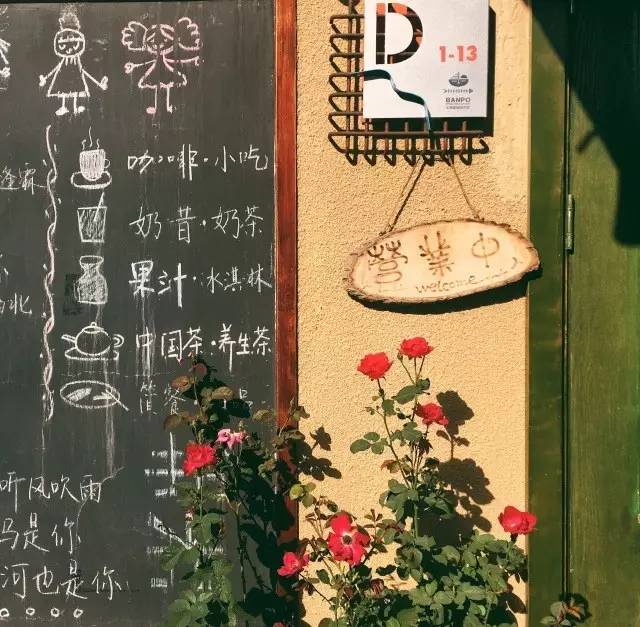 咖啡·小吃
奶昔·奶茶
果汁·冰淇淋
中国茶·养生茶
简餐
听风吹雨
马是你
河也是你
D
1-13
BANPO
营业中
welcome